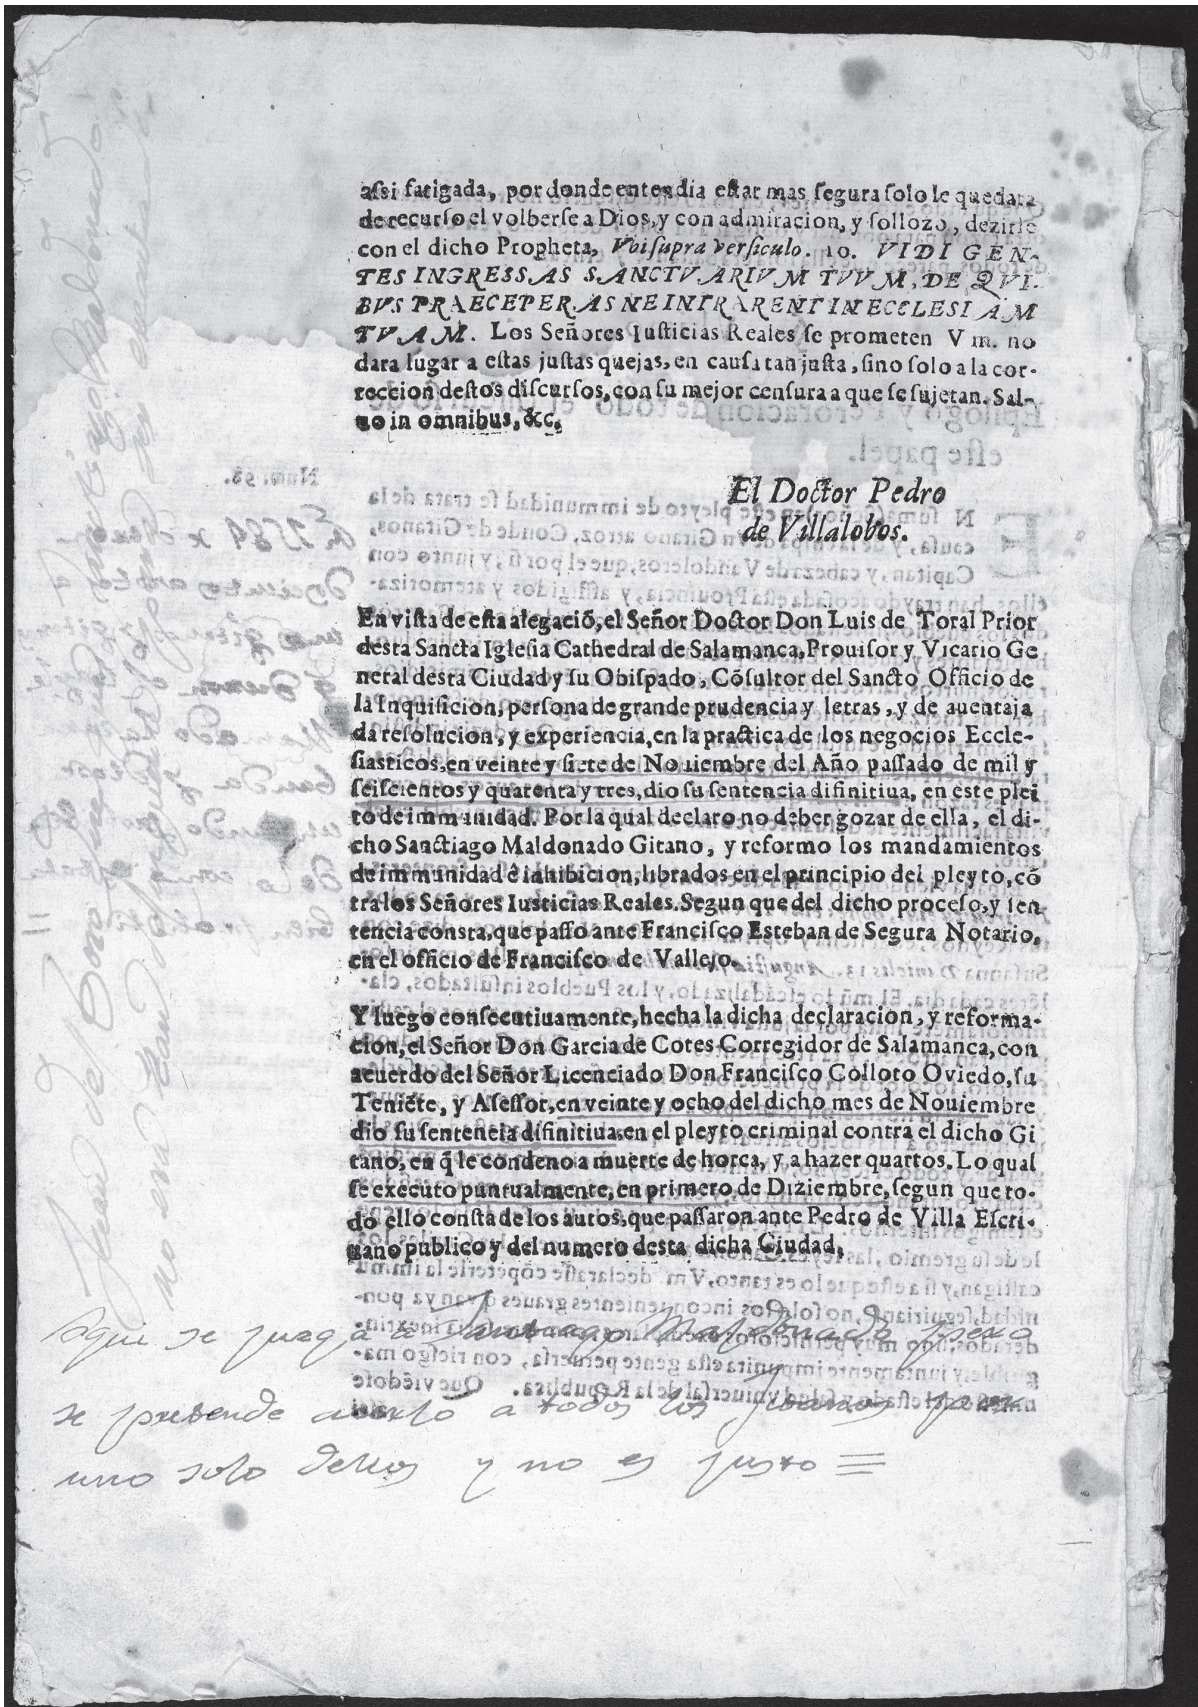 assi fatigada, por donde entendia estar mas segura solo le quedara
de recurso el volberse a Dios, y con admiracion, y sollozo, dezirle
con el dicho Propheta, Vbi supra versiculo. 10. VIDI GEN-
TES INGRESSAS SANCTVARIVM TVVM, DE QVI-
BVS PRAECEPERAS NE INTRARENT IN ECCLESIAM
TVAM. Los Señores Iusticias Reales se prometen Vm. no
dara lugar a estas justas quejas, en causa tan justa, sino solo a la cor-
reccion destos discursos, con su mejor censura a que se sujetan. Sal-
uo in omnibus, &c.
El Doctor Pedro
de Villalobos.
En vista de esta alegaciõ, el Señor Doctor Don Luis de Toral Prior
desta Sancta Iglesia Cathedral de Salamanca, Prouisor y Vicario Ge
neral desta Ciudad y su Obispado, Cõsultor del Sancto Officio de
la Inquisicion, persona de grande prudencia y letras, y de auentaja
da resolucion, y experiencia, en la practica de los negocios Eccle-
siasticos, en veinte y siete de Nouiembre del Año passado de mil y
seiscientos y quarenta y tres, dio su sentencia difinitiua, en este plei
to de immunidad. Por la qual declaro no deber gozar de ella, el di-
cho Sanctiago Maldonado Gitano, y reformo los mandamientos
de immunidad è inhibicion, librados en el principio del pleyto, cõ
tra los Señores Iusticias Reales. Segun que del dicho proceso, y sen
tencia consta, que passo ante Francisco Esteban de Segura Notario,
en el officio de Francisco de Vallejo.
Y luego consecutiuamente, hecha la dicha declaracion, y reforma-
cion, el Señor Don Garcia de Cotes Corregidor de Salamanca, con
acuerdo del Señor Licenciado Don Francisco Colloto Oviedo, su
Teniẽte, y Asessor, en veinte y ocho del dicho mes de Nouiembre
dio su sentencia difinitiua, en el pleyto criminal contra el dicho Gi
tano, en q̃ le condeno a muerte de horca, y a hazer quartos. Lo qual
se executo puntualmente, en primero de Diziembre, segun que to-
do ello consta de los autos, que passaron ante Pedro de Villa Escri-
uano publico y del numero desta dicha Ciudad.
Aqui se juzga a Santiago Maldonado pero
se pretende a todos los Jitanos por
uno solo dellos y no es justo